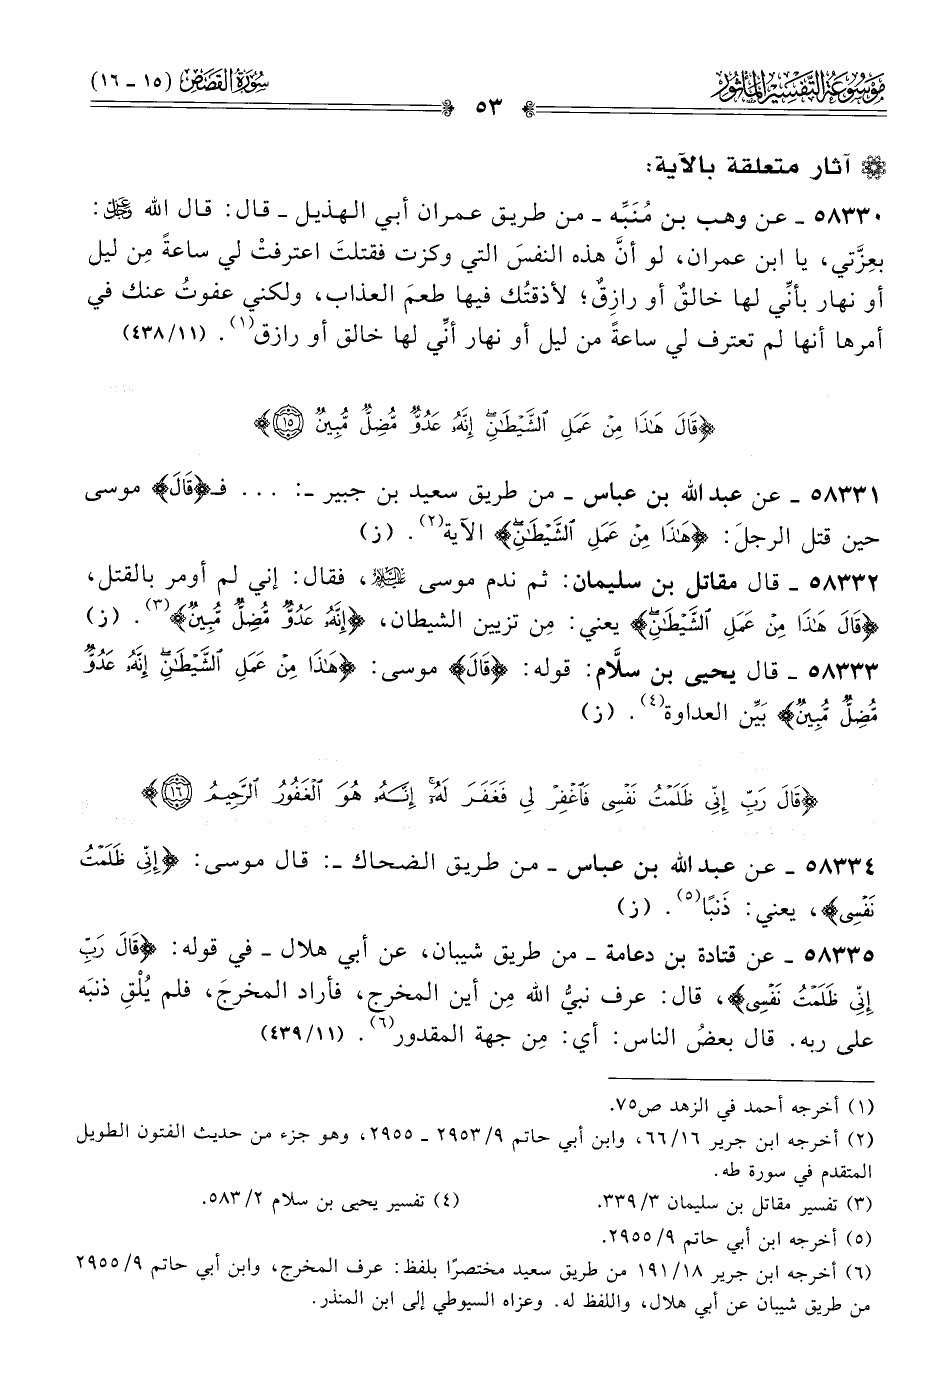 مَوْسُوعَةُ التَّفْسِيرِ المَأْثُورِ
٥٣
سُورَةُ القَصَصِ (١٥ - ١٦)
آثار متعلقة بالآية:
٥٨٣٣٠ - عن وهب بن مُنَبِّه - من طريق عمران أبي الهذيل - قال: قال الله عَزَّ وَجَلَّ:
بعِزَّتي، يا ابن عمران، لو أنَّ هذه النفسَ التي وكزت فقتلتَ اعترفتْ لي ساعةً مِن ليل
أو نهار بأنِّي لها خالقٌ أو رازِقٌ؛ لأذقتُك فيها طعمَ العذاب، ولكني عفوتُ عنك في
أمرها أنها لم تعترف لي ساعةً من ليل أو نهار أنِّي لها خالق أو رازق(١). (٤٣٨/١١)
﴿قَالَ هَٰذَا مِنْ عَمَلِ ٱلشَّيْطَٰنِۖ إِنَّهُۥ عَدُوٌّ مُّضِلٌّ مُّبِينٌ ١٥﴾
٥٨٣٣١ - عن عبد الله بن عباس - من طريق سعيد بن جبير -: ... فـ﴿قَالَ﴾ موسى
حين قتل الرجلَ: ﴿هَٰذَا مِنْ عَمَلِ ٱلشَّيْطَٰنِۖ﴾ الآية(٢). (ز)
٥٨٣٣٢ - قال مقاتل بن سليمان: ثم ندم موسى عَلَيْهِ السَّلَامُ، فقال: إني لم أومر بالقتل،
﴿قَالَ هَٰذَا مِنْ عَمَلِ ٱلشَّيْطَٰنِۖ﴾ يعني: مِن تزيين الشيطان، ﴿إِنَّهُۥ عَدُوٌّ مُّضِلٌّ مُّبِينٌ﴾(٣). (ز)
٥٨٣٣٣ - قال يحيى بن سلَّام: قوله: ﴿قَالَ﴾ موسى: ﴿هَٰذَا مِنْ عَمَلِ ٱلشَّيْطَٰنِۖ إِنَّهُۥ عَدُوٌّ
مُّضِلٌّ مُّبِينٌ﴾ بَيِّن العداوة(٤). (ز)
﴿قَالَ رَبِّ إِنِّي ظَلَمْتُ نَفْسِي فَٱغْفِرْ لِي فَغَفَرَ لَهُۥٓۚ إِنَّهُۥ هُوَ ٱلْغَفُورُ ٱلرَّحِيمُ ١٦﴾
٥٨٣٣٤ - عن عبد الله بن عباس - من طريق الضحاك -: قال موسى: ﴿إِنِّي ظَلَمْتُ
نَفْسِي﴾، يعني: ذَنبًا(٥). (ز)
٥٨٣٣٥ - عن قتادة بن دعامة - من طريق شيبان، عن أبي هلال - في قوله: ﴿قَالَ رَبِّ
إِنِّي ظَلَمْتُ نَفْسِي﴾، قال: عرف نبيُّ الله مِن أين المخرج، فأراد المخرجَ، فلم يُلْقِ ذنبَه
على ربه. قال بعضُ الناس: أي: مِن جهة المقدور(٦). (٤٣٩/١١)
(١) أخرجه أحمد في الزهد ص٧٥.
(٢) أخرجه ابن جرير ٦٦/١٦، وابن أبي حاتم ٢٩٥٣/٩ - ٢٩٥٥، وهو جزء من حديث الفتون الطويل
المتقدم في سورة طه.
(٣) تفسير مقاتل بن سليمان ٣٣٩/٣.
(٤) تفسير يحيى بن سلام ٥٨٣/٢.
(٥) أخرجه ابن أبي حاتم ٢٩٥٥/٩.
(٦) أخرجه ابن جرير ١٩١/١٨ من طريق سعيد مختصرًا بلفظ: عرف المخرج، وابن أبي حاتم ٢٩٥٥/٩
من طريق شيبان عن أبي هلال، واللفظ له. وعزاه السيوطي إلى ابن المنذر.